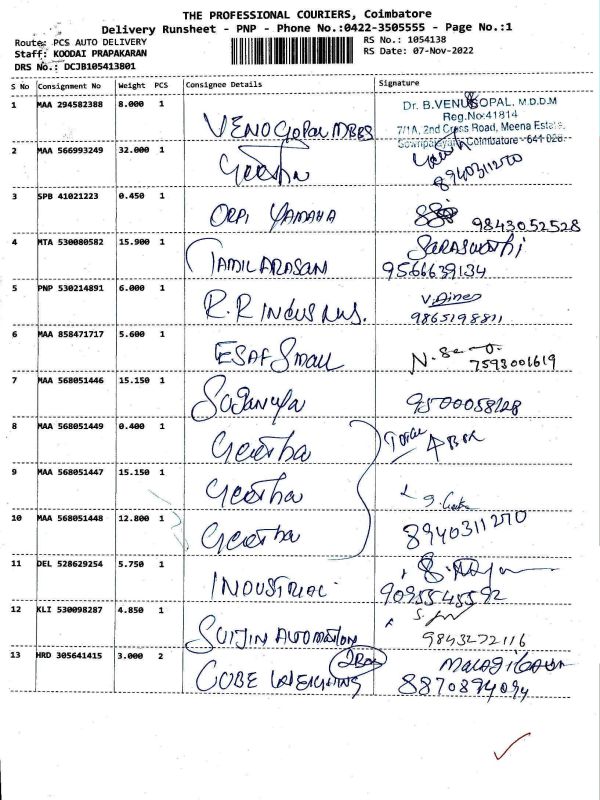 THE PROFESSIONAL COURIERS, Coimbatore
Delivery Runsheet - PNP - Phone No.:0422-3505555 - Page No.:1
Route: PCS AUTO DELIVERY RS No.: 1054138
Staff: KOODAI PRAPAKARAN RS Date: 07-Nov-2022
DRS No.: DCJB105413801
S No Consignment No Weight PCS Consignee Details Signature
1 MAA 294582388 8.000 1 VENOGOPAL MBBS
Dr. B.VENUGOPAL, M.D.D.M
Reg.No:41814
7/1A, 2nd Cross Road, Meena Estate,
Sowripalayam, Coimbatore - 641 028
2 MAA 566993249 32.000 1 Geetha 8940311270
3 SPB 41021223 0.450 1 ORPI YAMAHA 9843052528
4 MTA 530080582 15.900 1 TAMILARASAN Saraswathi
9566639134
5 PNP 530214891 6.000 1 R.R INDUS
9865198811
6 MAA 858471717 5.600 1 ESAF SMALL 7593001619
7 MAA 568051446 15.150 1 9500058128
8 MAA 568051449 0.400 1 Geetha Total 4 Box
9 MAA 568051447 15.150 1 Geetha
10 MAA 568051448 12.800 1 Geetha 8940311270
11 DEL 528629254 5.750 1 INDUSTRIAL 9095545592
12 KLI 530098287 4.850 1 SUIJIN AUTOMATION 9843272116
13 HRD 305641415 3.000 2 CUBE WEIGHING 2Box
8870894094